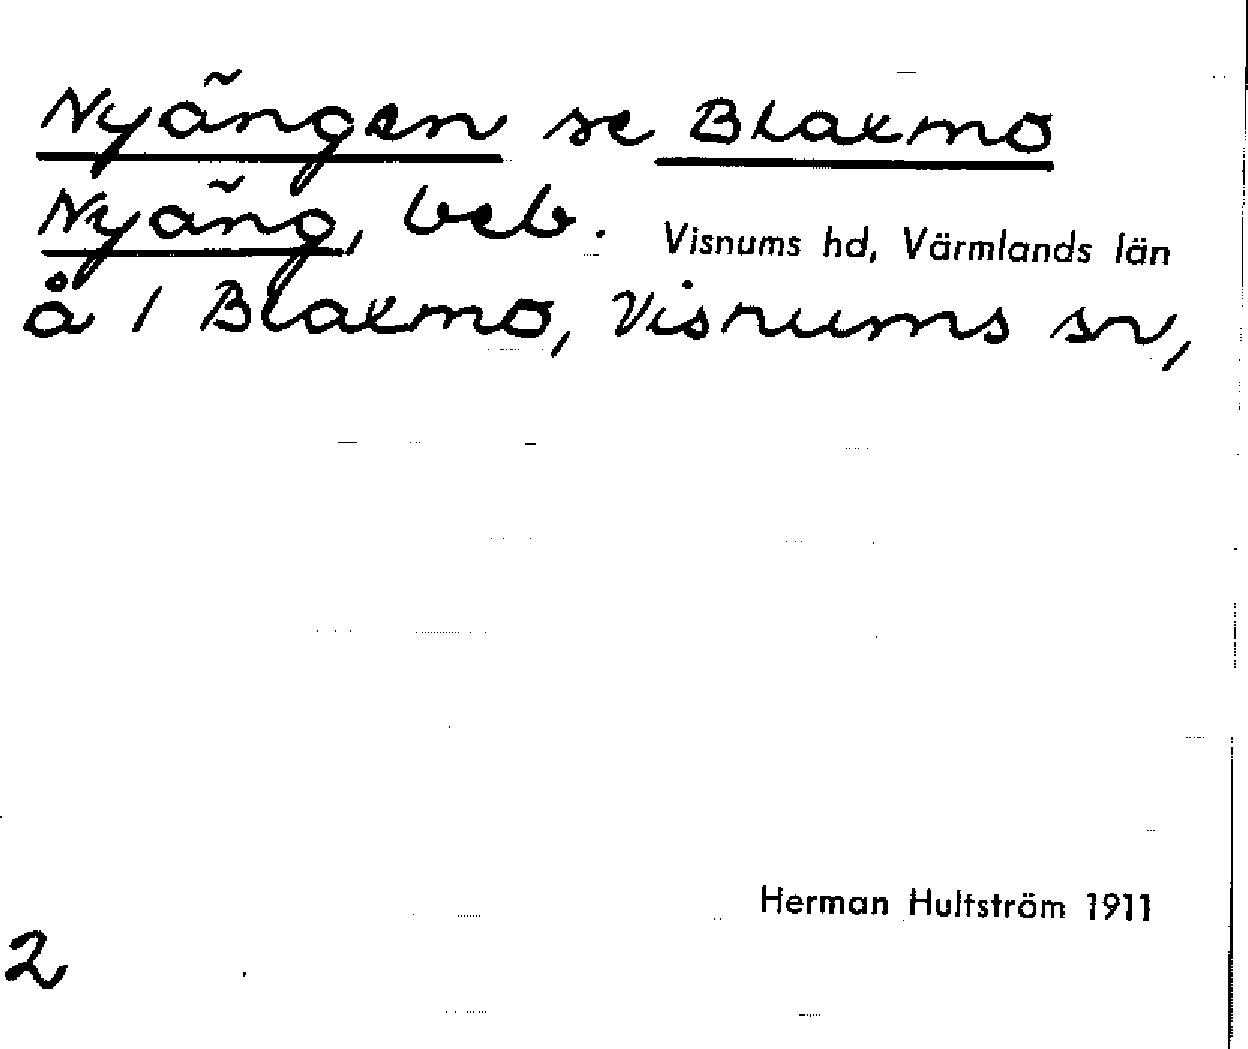 Nyängen se Blaxmo
Nyäng, beb. Visnums hd, Värmlands län
å / Blaxmo, Visnums sn,
Herman Hultström 1911
2